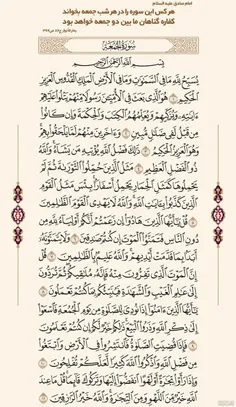 امام صادق علیه السلام
هر کس این سوره را در هر شب جمعه بخواند
کفاره گناهان ما بین دو جمعه خواهد بود
سُورَةُ الجُمُعَةِ
بِسْمِ اللَّهِ الرَّحْمَٰنِ الرَّحِيمِ
يُسَبِّحُ لِلَّهِ مَا فِي السَّمَٰوَٰتِ وَمَا فِي الْأَرْضِ الْمَلِكِ الْقُدُّوسِ الْعَزِيزِ
الْحَكِيمِ ١ هُوَ الَّذِي بَعَثَ فِي الْأُمِّيِّينَ رَسُولًا مِّنْهُمْ يَتْلُوا عَلَيْهِمْ
ءَايَٰتِهِ وَيُزَكِّيهِمْ وَيُعَلِّمُهُمُ الْكِتَٰبَ وَالْحِكْمَةَ وَإِن كَانُوا
مِن قَبْلُ لَفِي ضَلَٰلٍ مُّبِينٍ ٢ وَءَاخَرِينَ مِنْهُمْ لَمَّا يَلْحَقُوا بِهِمْ
وَهُوَ الْعَزِيزُ الْحَكِيمُ ٣ ذَٰلِكَ فَضْلُ اللَّهِ يُؤْتِيهِ مَن يَشَاءُ وَاللَّهُ
ذُو الْفَضْلِ الْعَظِيمِ ٤ مَثَلُ الَّذِينَ حُمِّلُوا التَّوْرَىٰةَ ثُمَّ لَمْ
يَحْمِلُوهَا كَمَثَلِ الْحِمَارِ يَحْمِلُ أَسْفَارًا بِئْسَ مَثَلُ الْقَوْمِ
الَّذِينَ كَذَّبُوا بِـَٔايَٰتِ اللَّهِ وَاللَّهُ لَا يَهْدِي الْقَوْمَ الظَّٰلِمِينَ
٥ قُلْ يَٰأَيُّهَا الَّذِينَ هَادُوا إِن زَعَمْتُمْ أَنَّكُمْ أَوْلِيَاءُ لِلَّهِ مِن
دُونِ النَّاسِ فَتَمَنَّوُا الْمَوْتَ إِن كُنتُمْ صَٰدِقِينَ ٦ وَلَا يَتَمَنَّوْنَهُ
أَبَدًا بِمَا قَدَّمَتْ أَيْدِيهِمْ وَاللَّهُ عَلِيمٌ بِالظَّٰلِمِينَ ٧ قُلْ
إِنَّ الْمَوْتَ الَّذِي تَفِرُّونَ مِنْهُ فَإِنَّهُ مُلَٰقِيكُمْ ثُمَّ تُرَدُّونَ
إِلَىٰ عَٰلِمِ الْغَيْبِ وَالشَّهَٰدَةِ فَيُنَبِّئُكُم بِمَا كُنتُمْ تَعْمَلُونَ
٨ يَٰأَيُّهَا الَّذِينَ ءَامَنُوا إِذَا نُودِيَ لِلصَّلَوٰةِ مِن يَوْمِ الْجُمُعَةِ فَاسْعَوْا
إِلَىٰ ذِكْرِ اللَّهِ وَذَرُوا الْبَيْعَ ذَٰلِكُمْ خَيْرٌ لَّكُمْ إِن كُنتُمْ تَعْلَمُونَ
٩ فَإِذَا قُضِيَتِ الصَّلَوٰةُ فَانتَشِرُوا فِي الْأَرْضِ وَابْتَغُوا
مِن فَضْلِ اللَّهِ وَاذْكُرُوا اللَّهَ كَثِيرًا لَّعَلَّكُمْ تُفْلِحُونَ ١٠
وَإِذَا رَأَوْا تِجَٰرَةً أَوْ لَهْوًا انفَضُّوا إِلَيْهَا وَتَرَكُوكَ قَائِمًا قُلْ مَا عِندَ
اللَّهِ خَيْرٌ مِّنَ اللَّهْوِ وَمِنَ التِّجَٰرَةِ وَاللَّهُ خَيْرُ الرَّٰزِقِينَ ١١